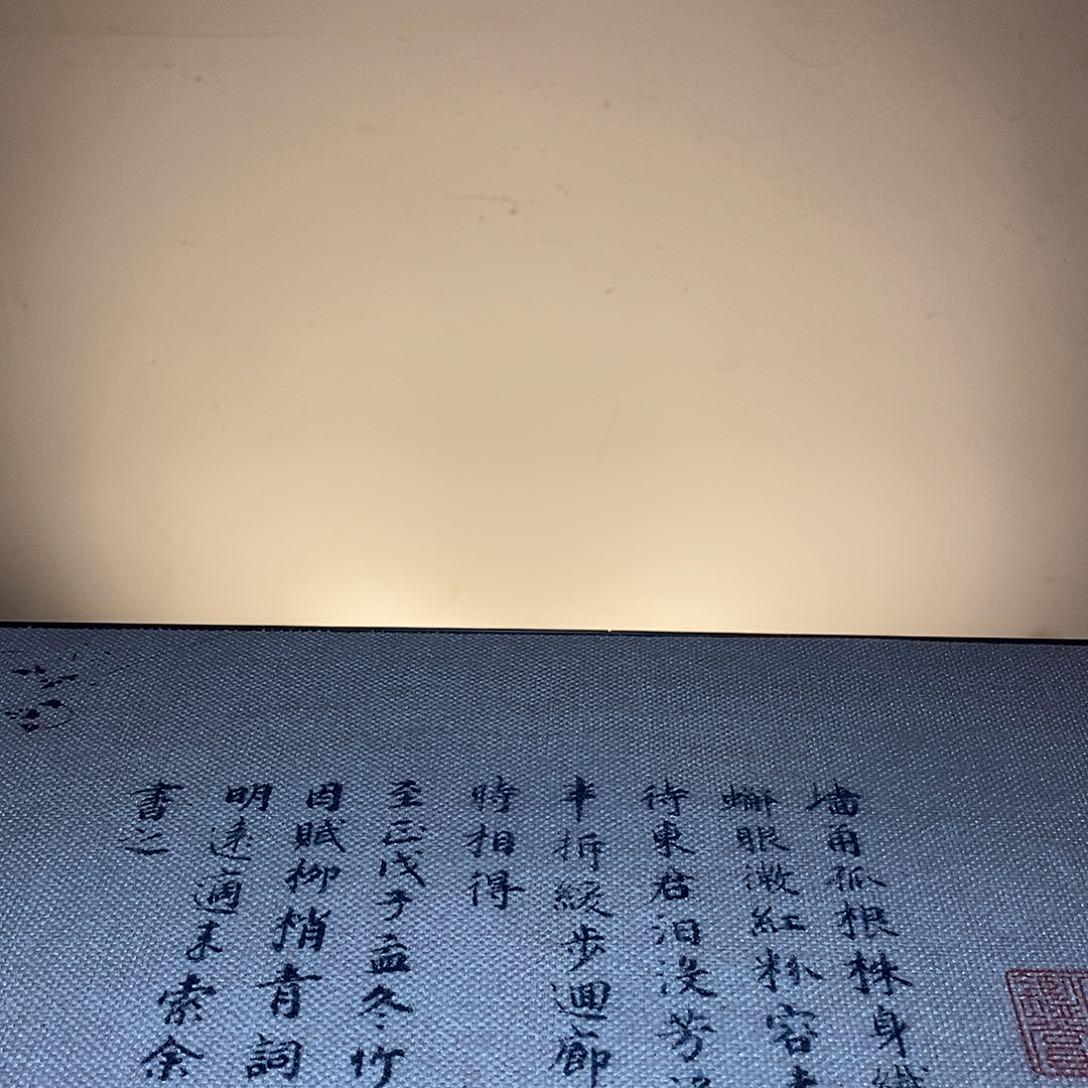 墻角孤根株身纖
蠏眼微紅粉容
待東君汨沒芳
半拆緩步迴廊
時相得
至正戊子孟冬竹
因賦柳梢青詞
明遠適来索余
書之